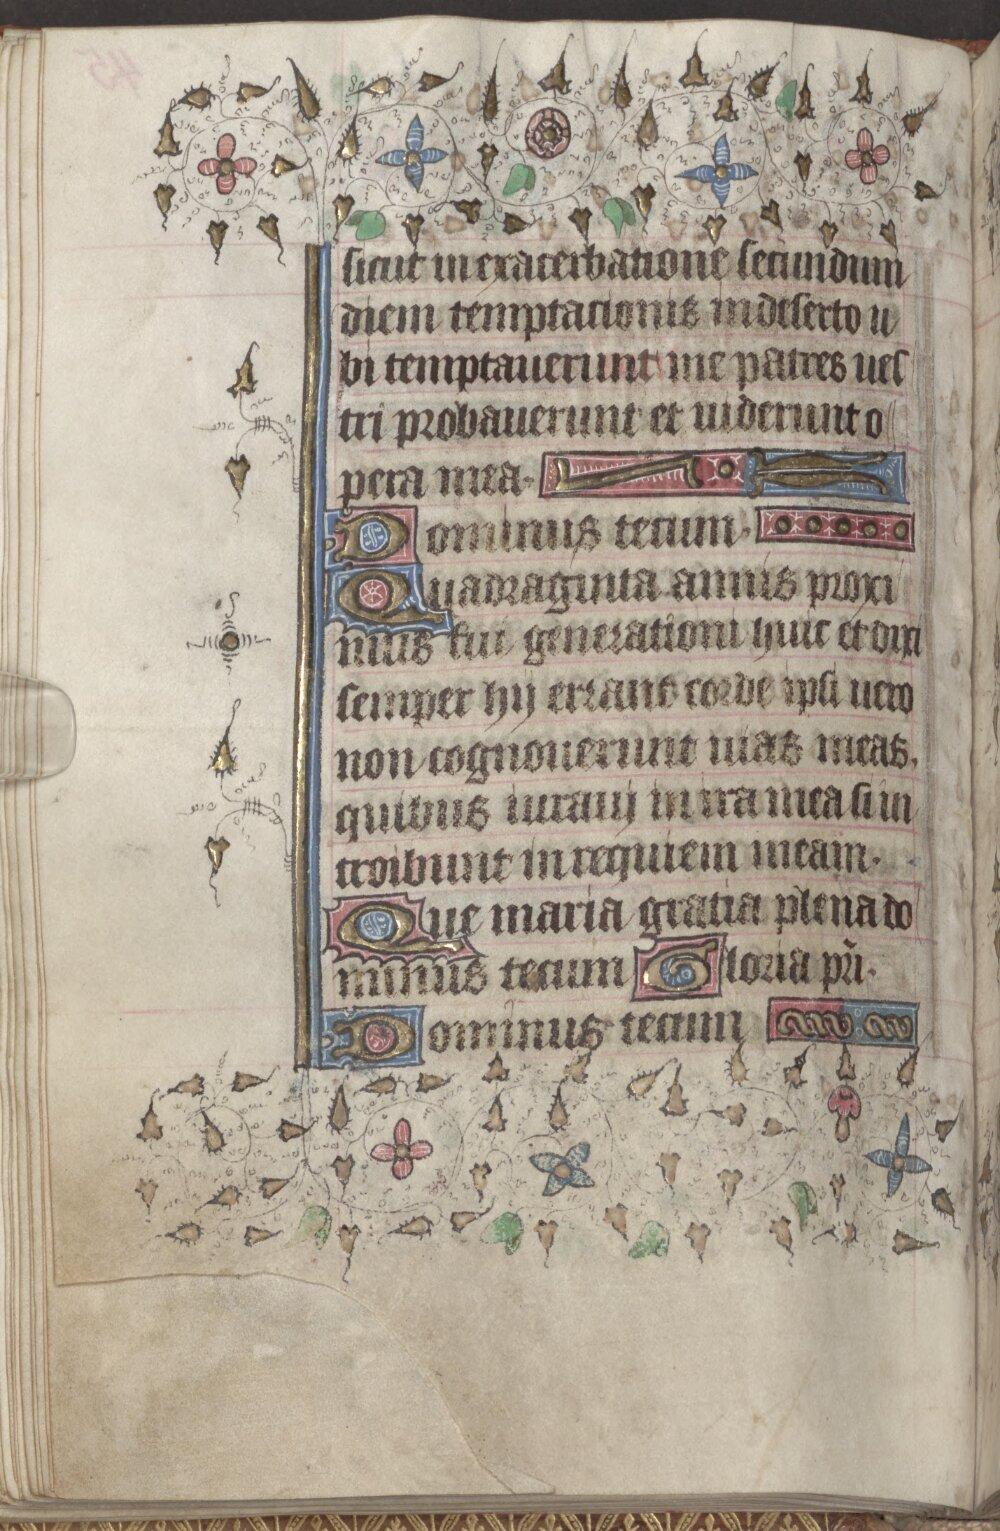 sicut in exacerbatione secundum
diem temptacionis in deserto u
bi temptauerunt me patres ues
tri probauerunt et uiderunt o
pera mea.
Dominus tecum.
Quadraginta annis proxi
mus fui generationi huic et dixi
semper hij errant corde ipsi uero
non cognouerunt uias meas.
quibus iuraui in ira mea si in
troibunt in requiem meam.
Aue maria gratia plena do
minus tecum Gloria pri.
Dominus tecum